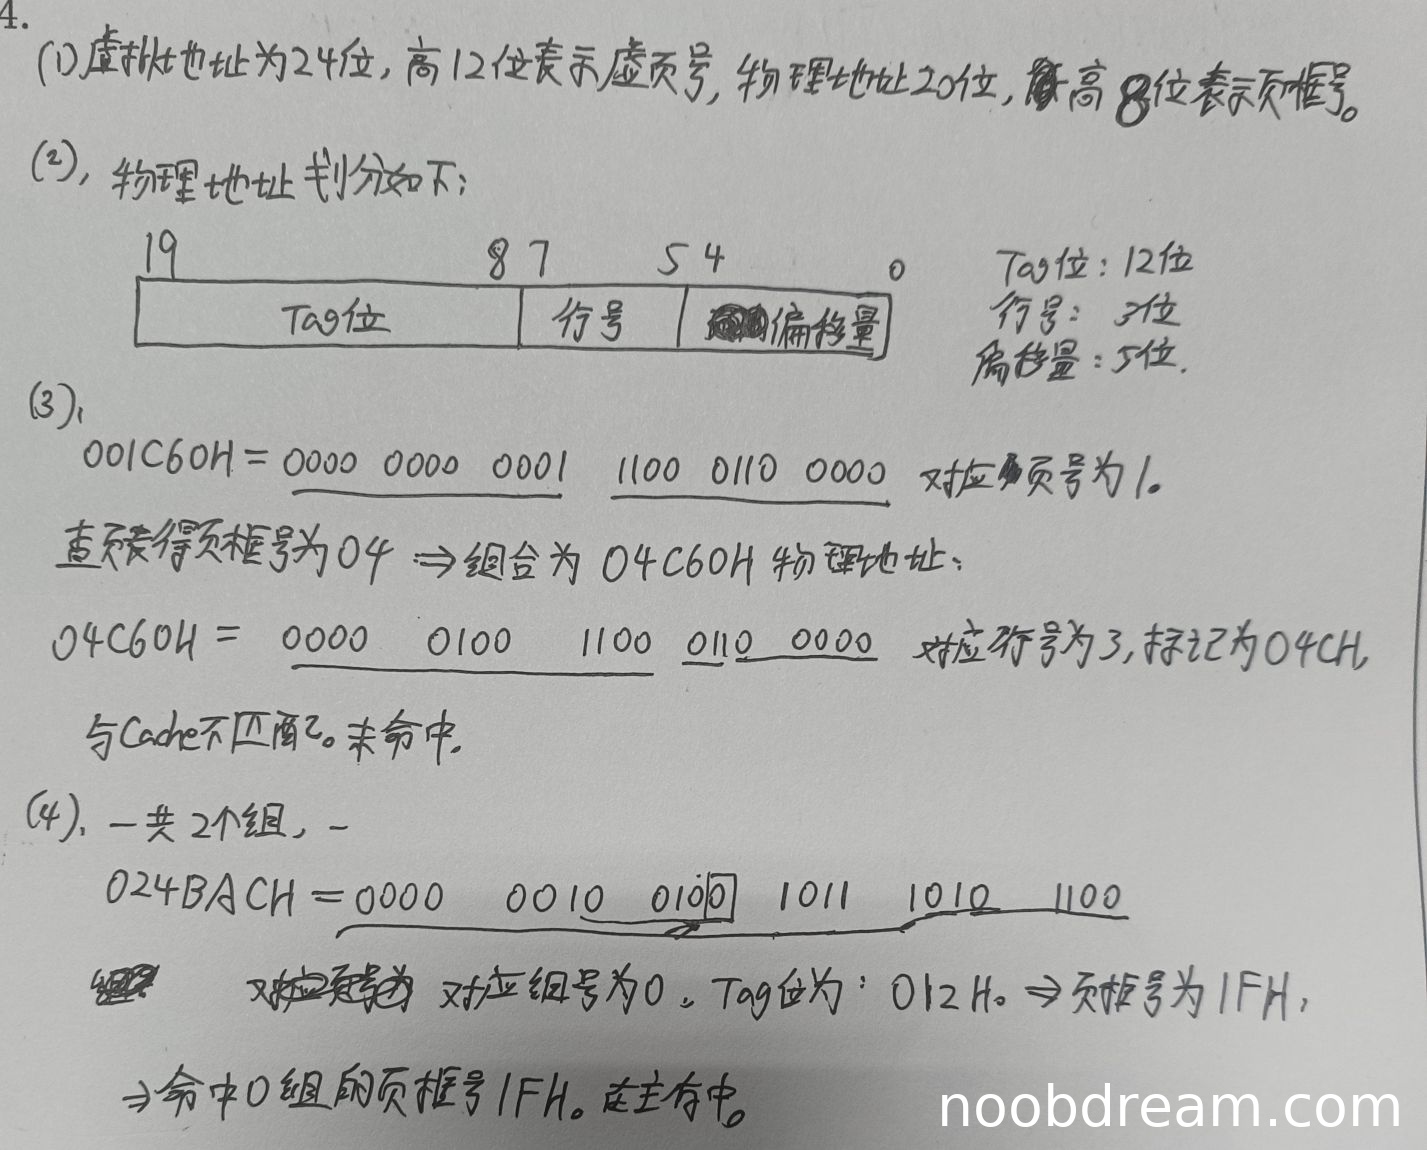 4.
(1)虚拟地址为24位,高12位表示虚页号,物理地址20位,高8位表示页框号。
(2),物理地址划分如下:
19 8 7 5 4 0
Tag位 行号 偏移量
Tag位:12位
行号:3位
偏移量:5位.
(3),
001C60H = 0000 0000 0001 1100 0110 0000 对应页号为1。
查页表得页框号为04 ⇒ 组合为 04C60H 物理地址:
04C60H = 0000 0100 1100 0110 0000 对应行号为3,标记为04CH,
与Cache不匹配。未命中.
(4).一共2个组,-
024BACH = 0000 0010 0100 1011 1010 1100
对应组号为0。Tag位为:012H。⇒页框号为1FH,
⇒命中0组的页框号1FH。在主存中。
noobdream.com